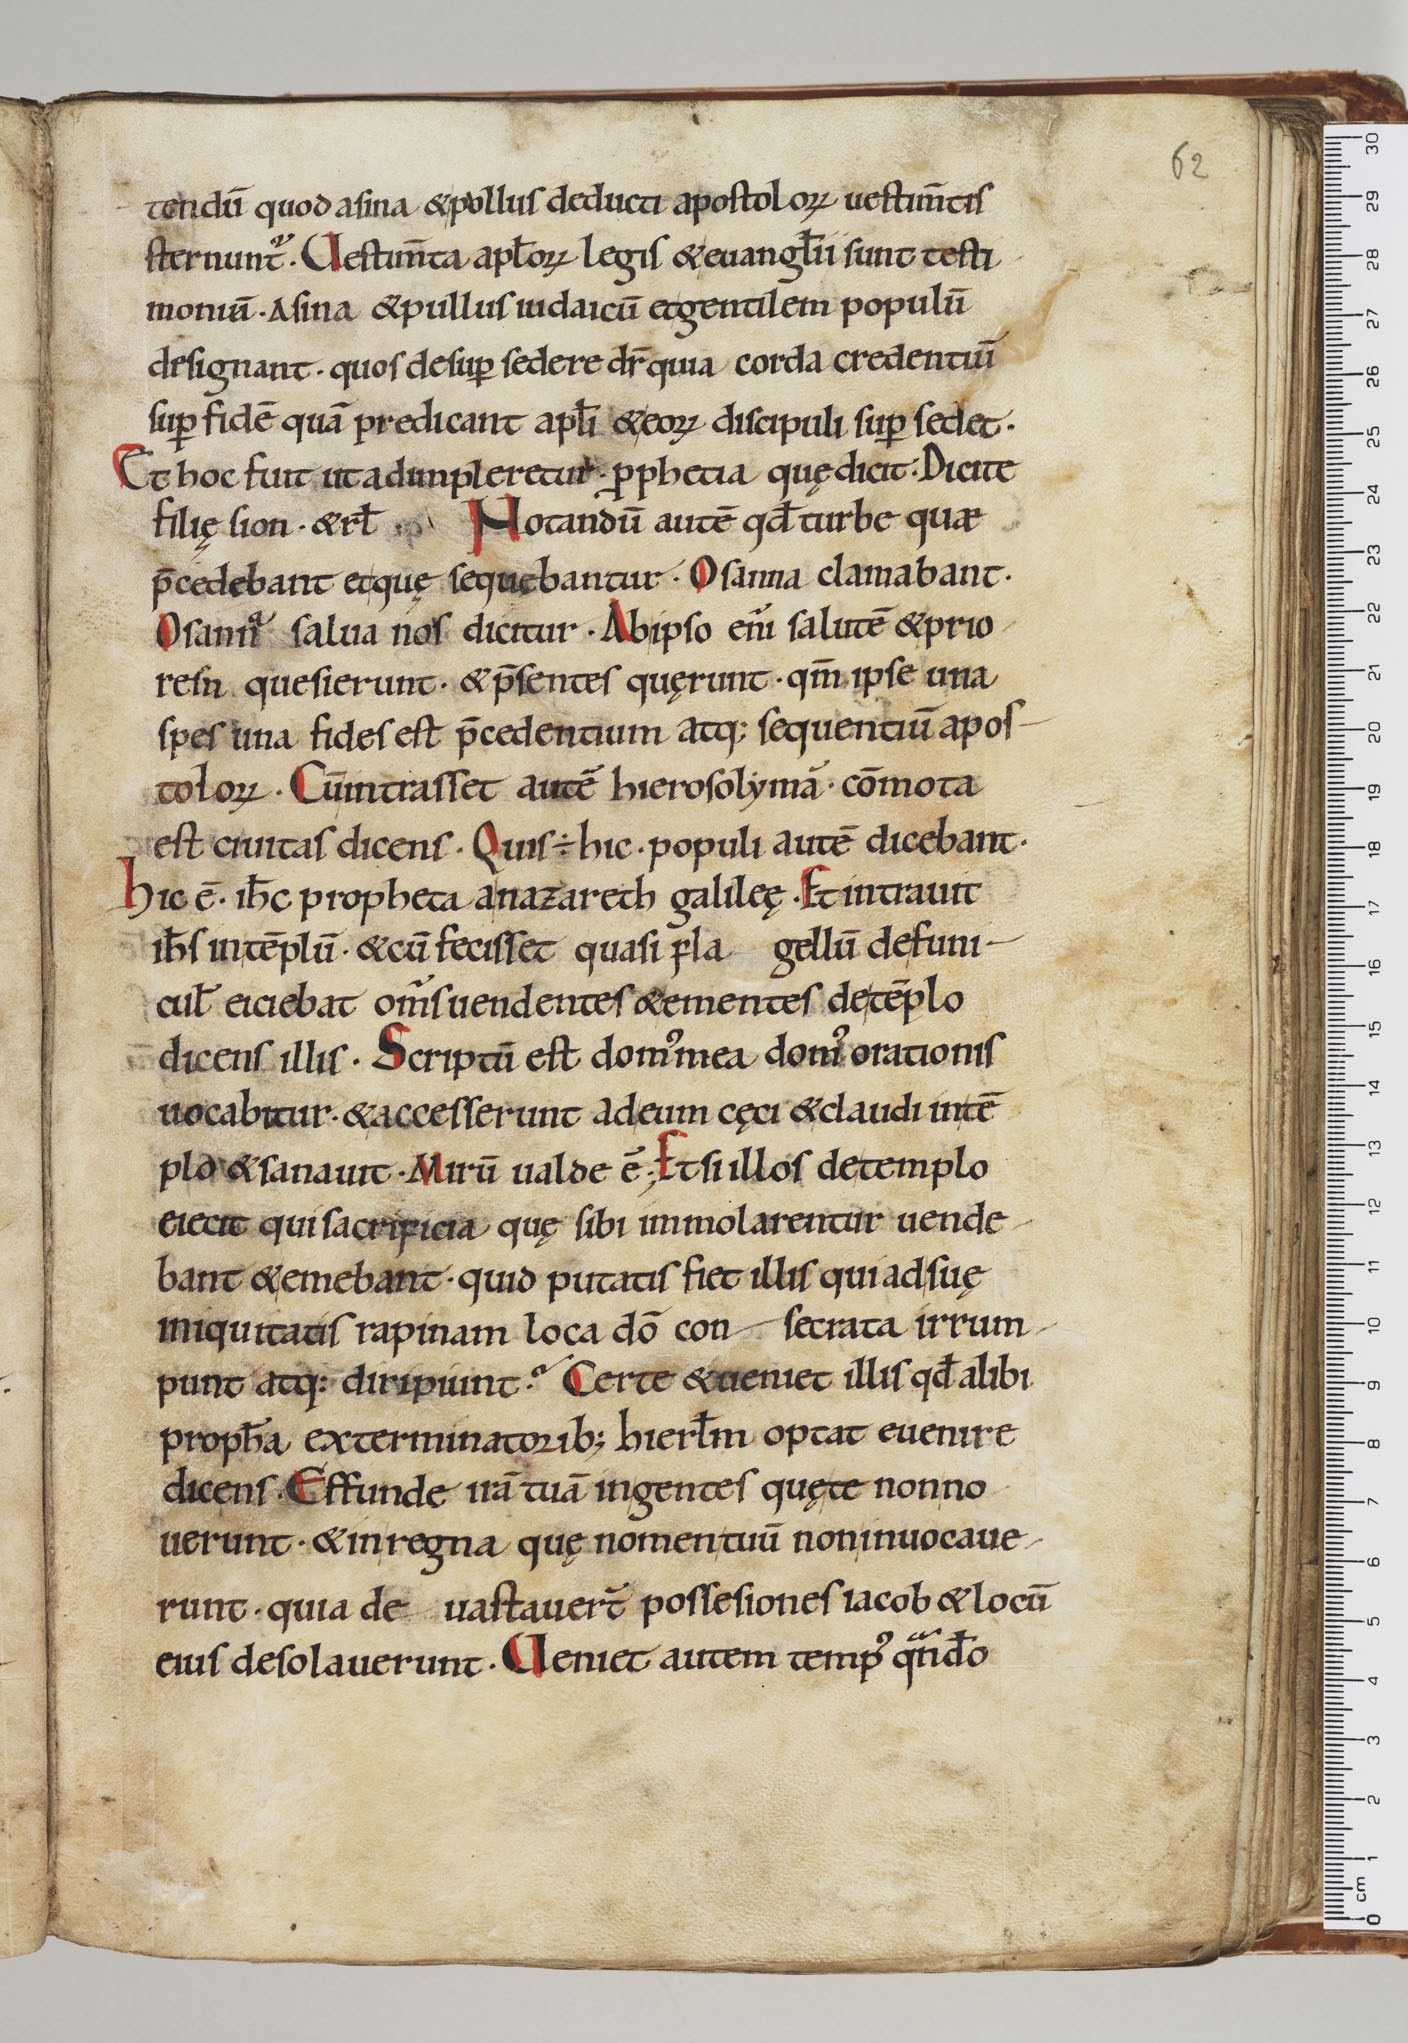 62
tendū quod asina & pollus deducti apostoloꝝ uestim̄tis
sternunt᷑. Uestim̄ta apl̄oꝝ legis & euangl̄ii sunt testi
moniū. Asina & pullus iudaicū et gentilem populū
designant. quos desuꝑ sedere dr̄ quia corda credentiū
suꝑ fidē quā predicant apl̄i & eoꝝ discipuli suꝑ sedet.
Et hoc fuit ut adimpleretur. ꝓphetia quę dicit. Dicite
filię sion. & rł Notandū autē qđ turbe quæ
p̄cedebant et quę sequebantur. Osanna clamabant.
Osannᵃ salua nos dicitur. Ab ipso eni̅ salutē & prio
resn quesierunt. & p̄sentes quęrunt. qm̄ ipse una
spes una fides est p̄cedentium atq; sequentiū apos
toloꝝ. Cūintrasset autē hierosolymā. cōmota
est ciuitas dicens. Quis ÷ hic. populi autē dicebant.
hic ē. ih̄c propheta a nazareth galileę. Et intrauit
ih̄s in tēplū. & cū fecisset quasi fla gellū de funi
cul̄ eiciebat om̄s uendentes & ementes de tēplo
dicens illis. Scriptū est domꝰ mea domꝰ orationis
uocabitur. & accesserunt ad eum cęci & claudi in tē
plo & sanauit. Mirū ualde ē. Et si illos de templo
eiecit qui sacrificia quę sibi immolarentur uende
bant & emebant. quid putatis fiet illis qui ad suę
iniquitatis rapinam loca dō con secrata irrum
punt atq; diripiunt. Certe & ueniet illis qđ alibi
proph̄a exterminatorib; hierl̄m optat euenire
dicens. Effunde irā tuā in gentes quę te non no
uerunt. & in regna quę nomen tuū non inuocaue
runt. quia de uastauer̄t possesiones iacob & locū
eius desolauerunt. Ueniet autem tempꝰ qᵃndo